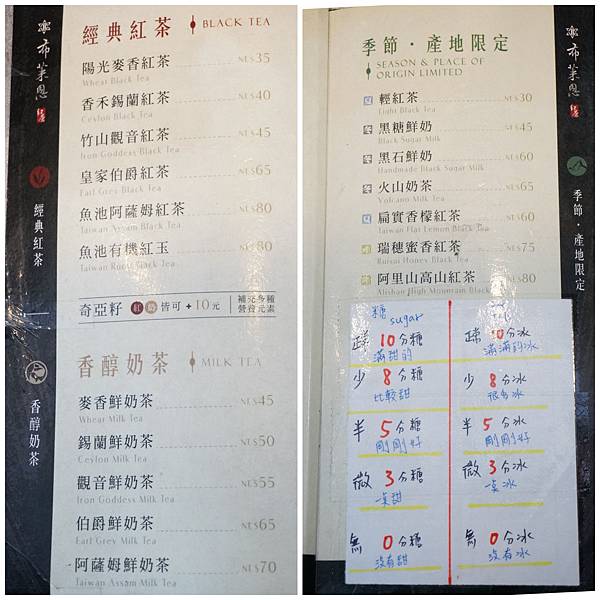 布萊恩
紅茶
經典紅茶
香醇奶茶
經典紅茶 BLACK TEA
陽光麥香紅茶 NT$35
Wheat Black Tea
香禾錫蘭紅茶 NT$40
Ceylon Black Tea
竹山觀音紅茶 NT$45
Iron Goddess Black Tea
皇家伯爵紅茶 NT$65
Earl Grey Black Tea
魚池阿薩姆紅茶 NT$80
Taiwan Assam Black Tea
魚池有機紅玉 NT$80
Taiwan Black Tea
奇亞籽 紅 奶 皆可+10元 補充多種
營養元素
香醇奶茶 MILK TEA
麥香鮮奶茶 NT$45
Wheat Milk Tea
錫蘭鮮奶茶 NT$50
Ceylon Milk Tea
觀音鮮奶茶 NT$55
Iron Goddess Milk Tea
伯爵鮮奶茶 NT$65
Earl Grey Milk Tea
阿薩姆鮮奶茶 NT$70
Taiwan Assam Milk Tea
季節・產地限定
SEASON & PLACE OF
ORIGIN LIMITED
輕紅茶 NT$30
Light Black Tea
黑糖鮮奶 NT$45
Black Sugar Milk
黑石鮮奶 NT$60
Handmade Black Sugar Milk
火山奶茶 NT$65
Volcano Milk Tea
扁實香檬紅茶 NT$60
Taiwan Flat Lemon Black Tea
瑞穗蜜香紅茶 NT$75
Ruisui Honey Black Tea
阿里山高山紅茶 NT$80
Alishan High Mountain Black Tea
布萊恩
紅茶
季節・產地限定
糖
sugar
正常 10分糖
滿甜的
少 8分糖
比較甜
半 5分糖
剛剛好
微 3分糖
一點甜
無 0分糖
沒有甜
10分冰
滿滿的冰
少 8分冰
很多冰
半 5分冰
剛剛好
微 3分冰
一點冰
無 0分冰
沒有冰